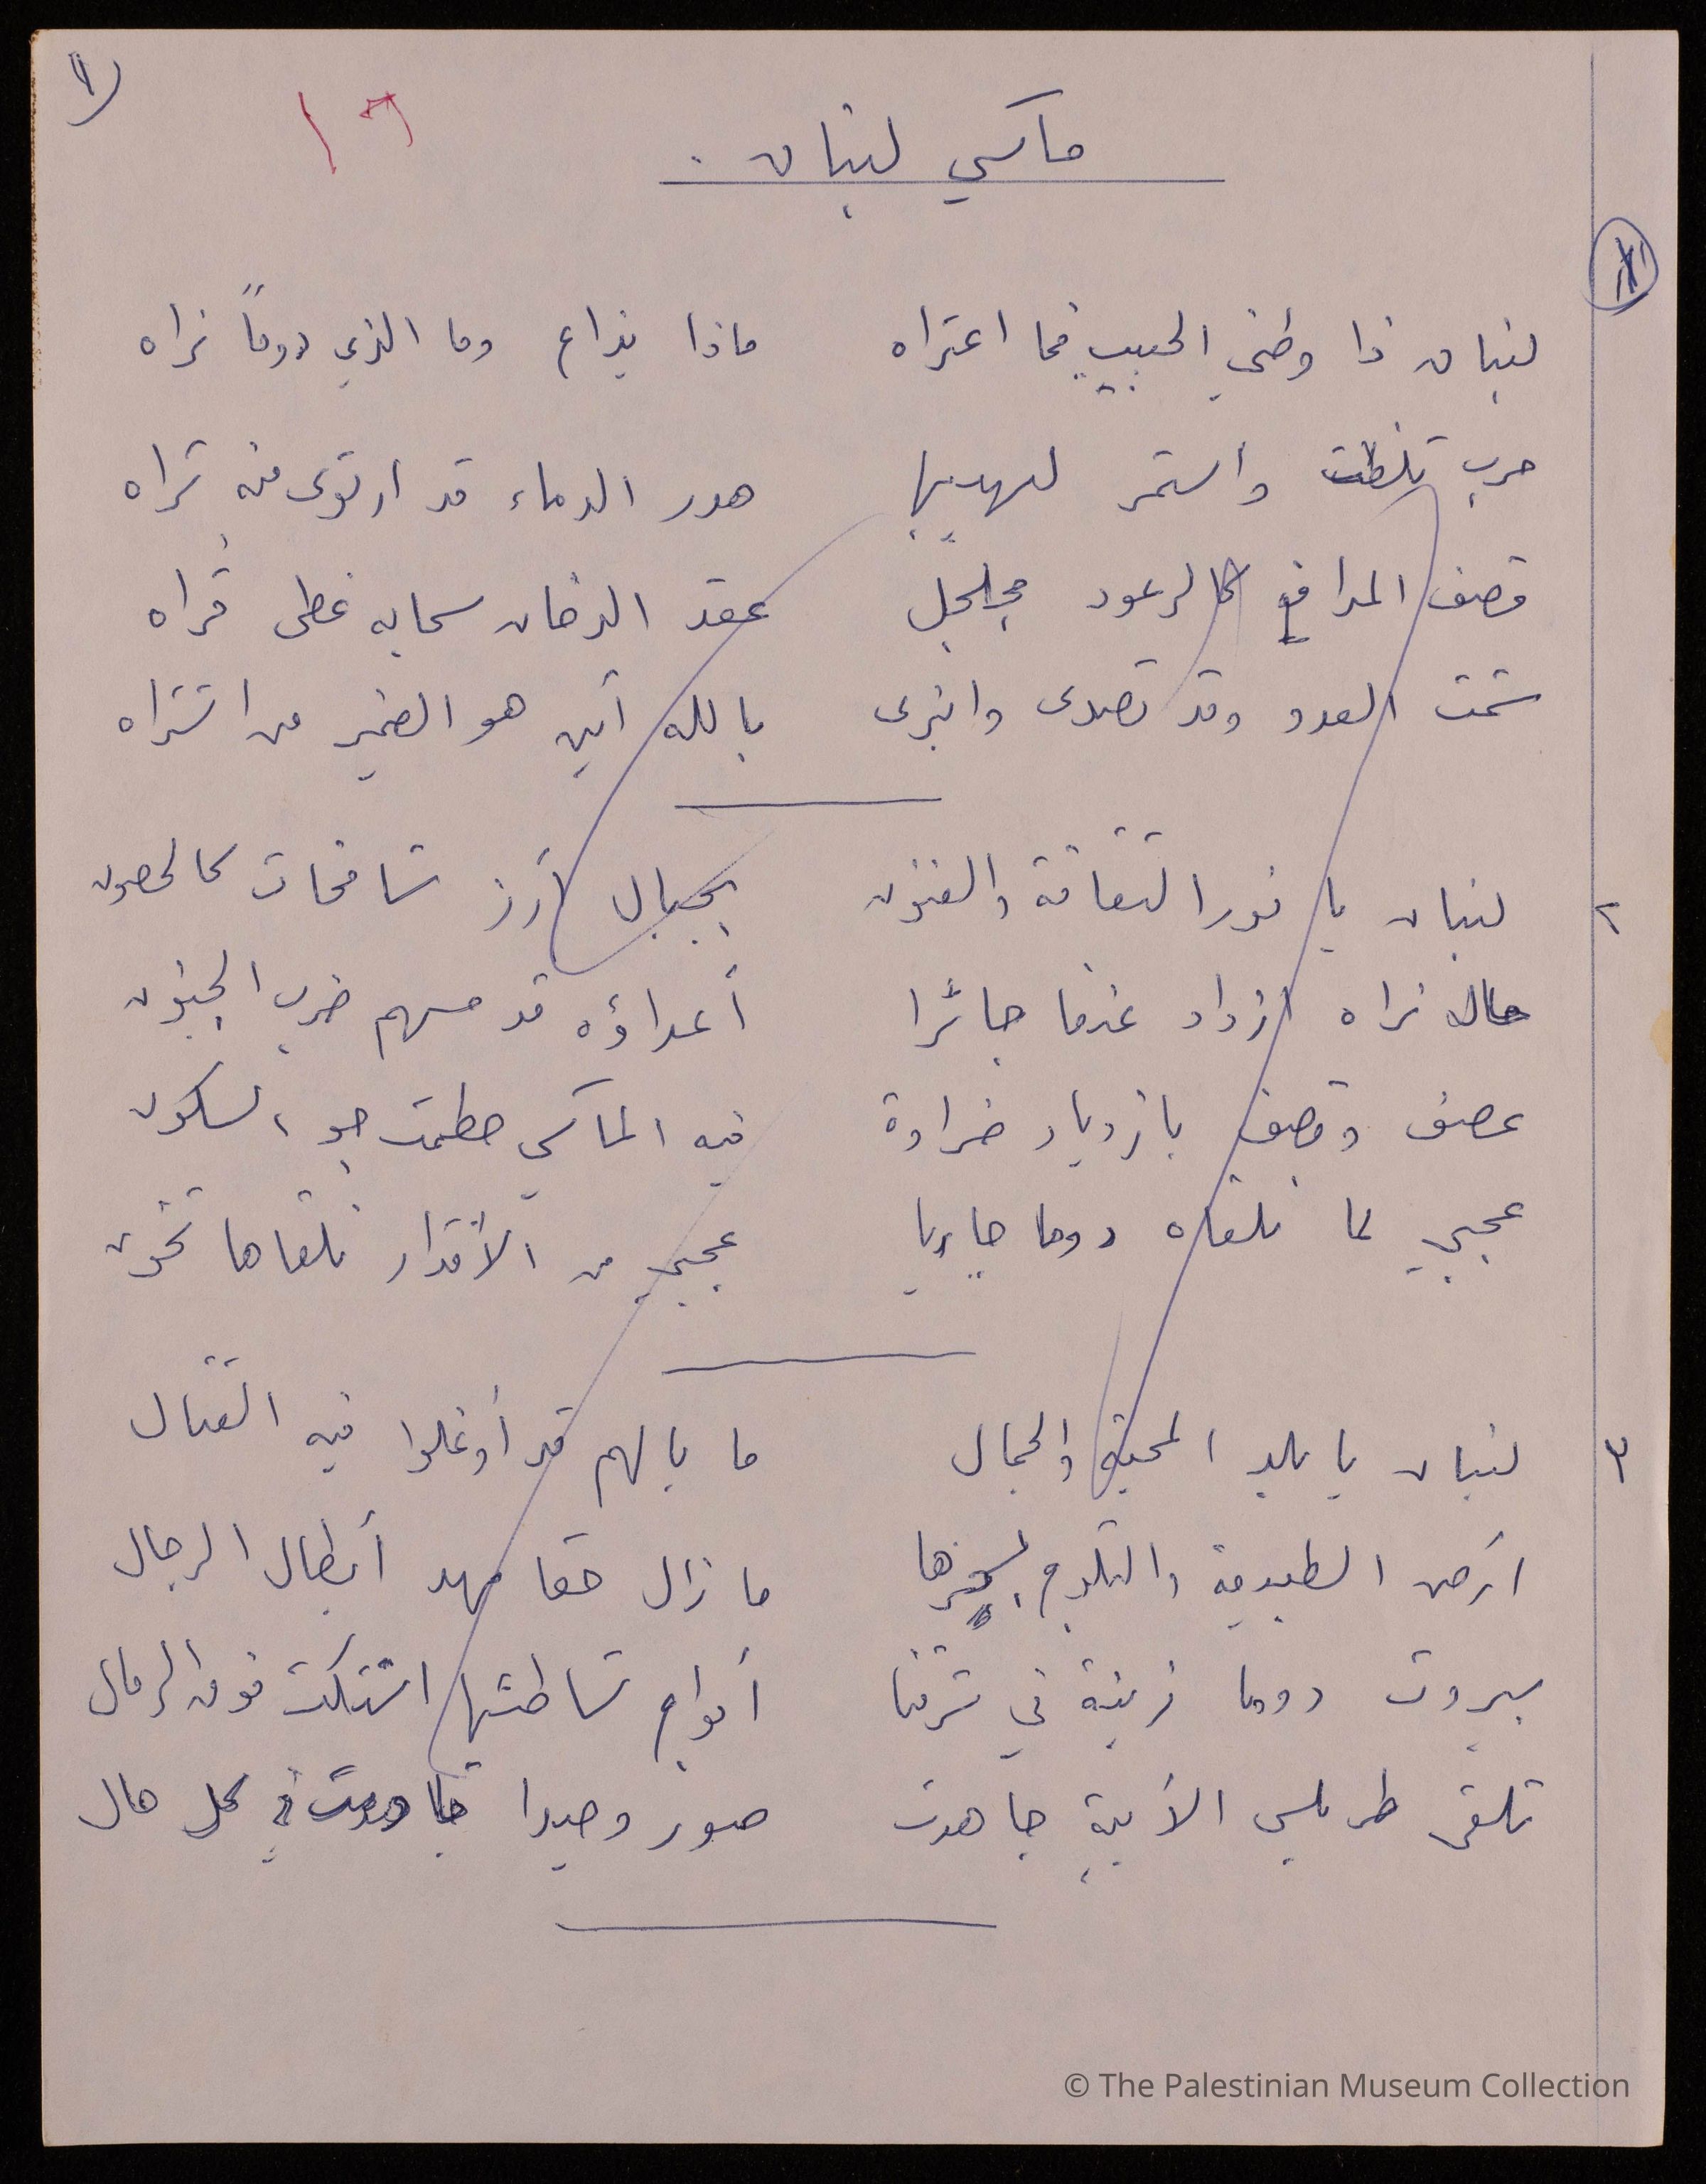 ١
١٦
مآسي لبنان .
لبنان ذا وطني الحبيب فما اعتراه ماذا يذاع وما الذي دوماً نراه
حرب تلظت واستمر لهيبها هدر الدماء قد ارتوى منه ثراه
قصف المدافع كالرعود مجلجل عقد الدخان سحابه غطى قراه
شمت العدو وقد تصدى وانبرى بالله أين هو الضمير من اشتراه
٢ لبنان يا نور الثقافة والفنون بجبال أرز شامخات كالحصون
حال نراه ازداد غدما جائرا أعداؤه قد مسهم ضرب الجنون
عصف وقصف بازدياد ضراوة فيه المآسي حطمت جو السكون
عجبي لما نلقاه دوما جاريا عجبي من الأقدار نلقاها تخون
٣ لبنان يا بلد المحبة والجمال ما بالهم قد أوغلوا فيه القتال
أرض الطبيعة والثلوج ما زال حقا مهد أبطال الرجال
بيروت دوما زينة في شرقنا أمواج شاطئها اشتكت فوق الرمال
تلقى طرابلس الأبية جاهدت صور وصيدا قاومت في كل حال
© The Palestinian Museum Collection